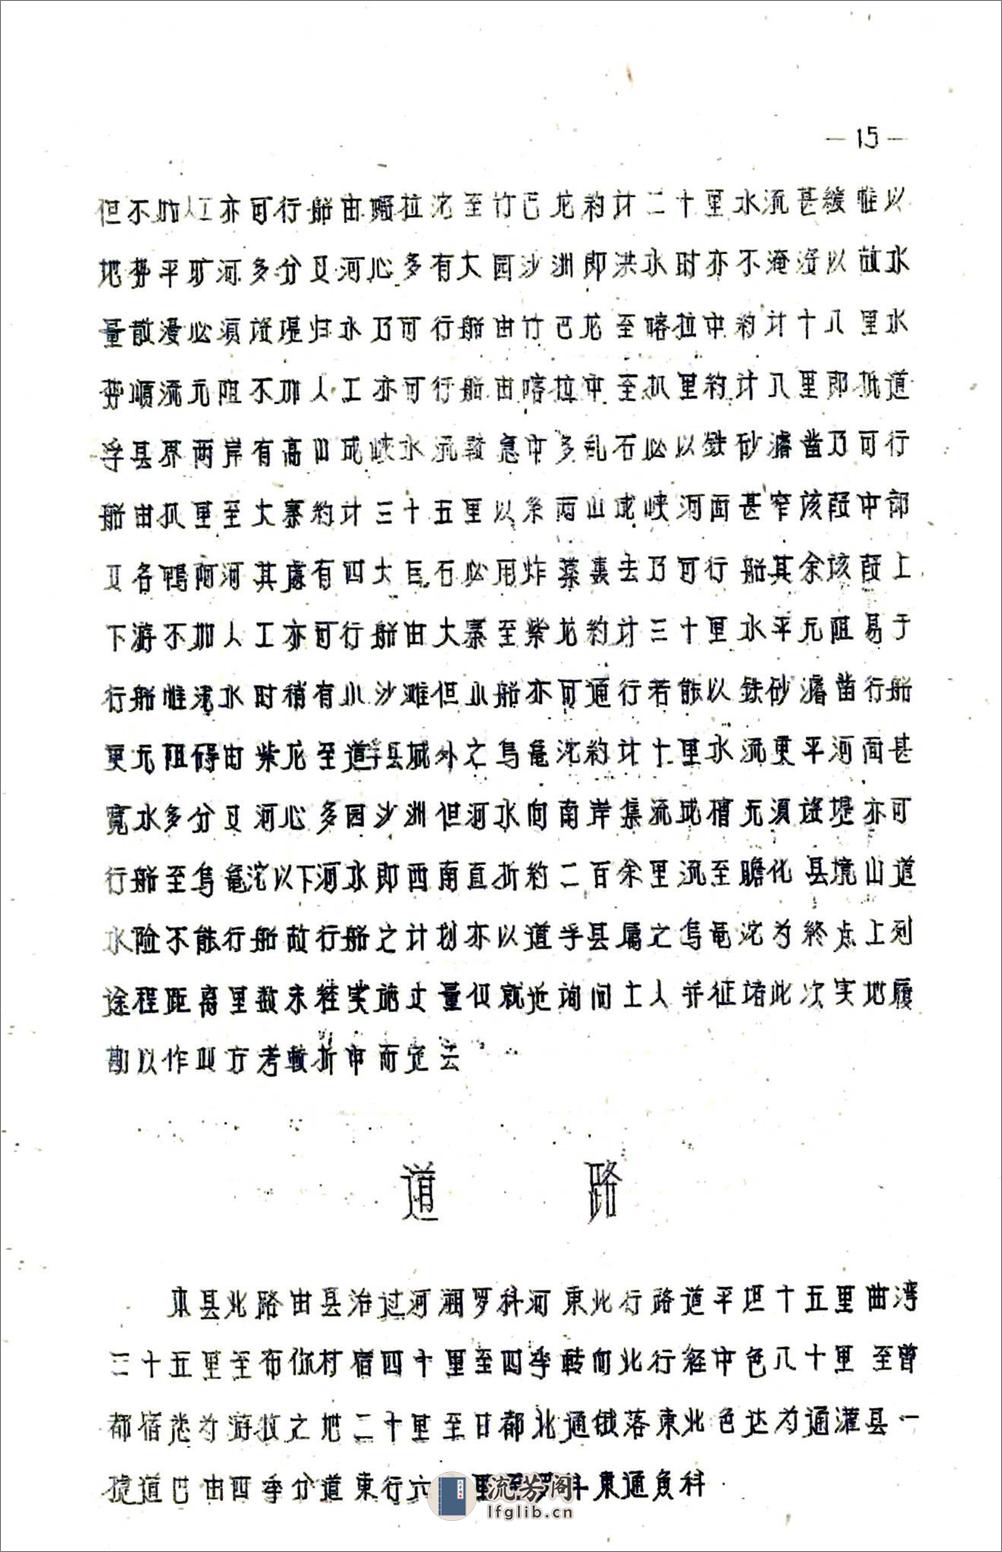 —15—
但不加人工亦可行船由噶拉沱至竹巴龙约计二十里水流甚缓惟以
地势平旷河多分叉河心多有大园沙洲即洪水时亦不淹没以故水
量散漫必须筑堤归水乃可行船由竹巴龙至喀拉中约计十八里水
势顺流元阻不加人工亦可行船由喀拉中至扒里约计八里即抵道
孚县界两岸有高山成峡水流较急中多乱石必以铁砂凿乃可行
船由扒里至大寨约计三十五里以系两山成峡河面甚窄该段中部
又名鸭河其處有四大巨石必用炸藥轰去乃可行船其余该段上
下游不加人工亦可行船由大寨至紫龙约计三十里水平元阻易于
行船惟水时稍有小沙滩但小船亦可通行若能以铁砂凿行船
更元阻碍由紫龙至道孚县城外之乌黾沱约计十里水流更平河面甚
宽水多分叉河心多园沙洲但河水向南岸集流成槽元须筑堤亦可
行船至乌黾沱以下河水即西南直折约二百余里流至瞻化县境山道
水险不能行船故行船之计划亦以道孚县属之乌黾沱为終点上列
途程距离里数未经实施丈量但就近询问土人并征诸此次实地履
勘以作双方考較折中而定云
道 路
本县北路由县治过河溯罗科河東北行路道平坦十五里曲湾
三十五里至布你村宿四十里至四季转向北行经中色八十里至曾
都宿悉为游牧之地二十里至日都北通俄落東北色达为通灌县一
捷道巴由四季分道東行六里至罗科東通鱼科
流芳阁
lfglib.cn